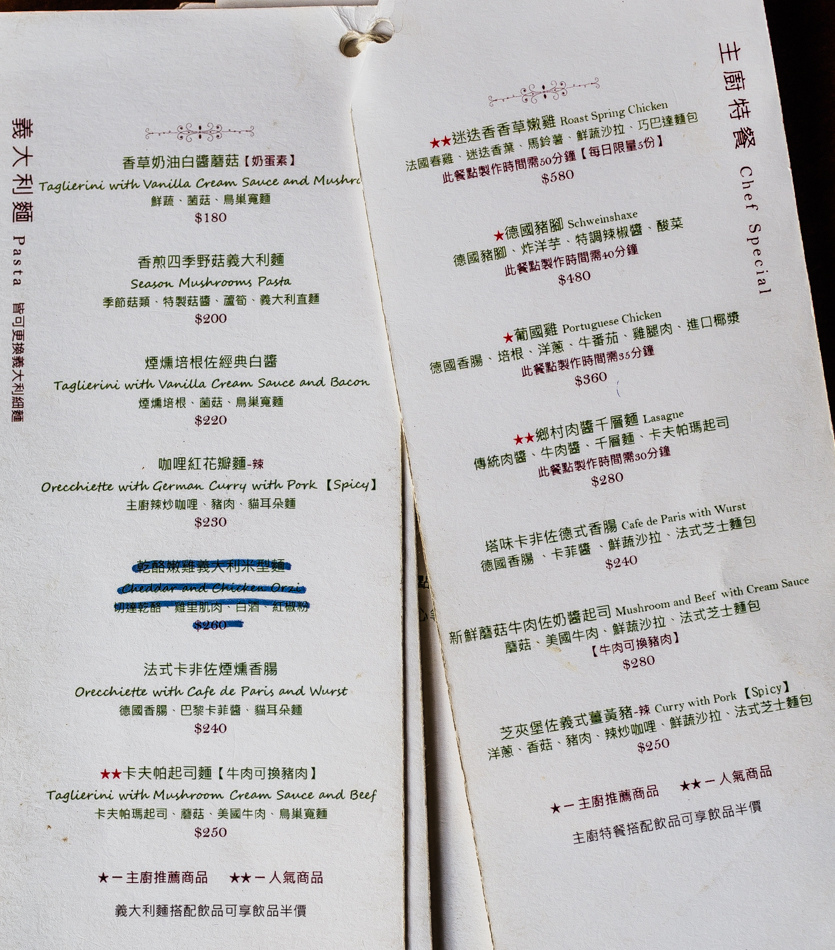 義大利麵 Pasta 皆可更換義大利細麵
香草奶油白醬蘑菇【奶蛋素】
Taglierini with Vanilla Cream Sauce and Mushro
鮮蔬、菌菇、鳥巢寬麵
$180
香煎四季野菇義大利麵
Season Mushrooms Pasta
季節菇類、特製菇醬、蘆筍、義大利直麵
$200
煙燻培根佐經典白醬
Taglierini with Vanilla Cream Sauce and Bacon
煙燻培根、菌菇、鳥巢寬麵
$220
咖哩紅花瓣麵-辣
Orecchiette with German Curry with Pork【Spicy】
主廚辣炒咖哩、豬肉、貓耳朵麵
$230
乾酪嫩雞義大利米型麵
Cheddar and Chicken Orzi
切達乾酪、雞里肌肉、白酒、紅椒粉
$260
法式卡非佐煙燻香腸
Orecchiette with Cafe de Paris and Wurst
德國香腸、巴黎卡菲醬、貓耳朵麵
$240
★★卡夫帕起司麵【牛肉可換豬肉】
Taglierini with Mushroom Cream Sauce and Beef
卡夫帕瑪起司、蘑菇、美國牛肉、鳥巢寬麵
$250
★－主廚推薦商品 ★★－人氣商品
義大利麵搭配飲品可享飲品半價
主廚特餐 Chef Special
★★迷迭香香草嫩雞 Roast Spring Chicken
法國春雞、迷迭香葉、馬鈴薯、鮮蔬沙拉、巧巴達麵包
此餐點製作時間需50分鐘【每日限量5份】
$580
★德國豬腳 Schweinshaxe
德國豬腳、炸洋芋、特調辣椒醬、酸菜
此餐點製作時間需40分鐘
$480
★葡國雞 Portuguese Chicken
德國香腸、培根、洋蔥、牛番茄、雞腿肉、進口椰漿
此餐點製作時間需35分鐘
$360
★★鄉村肉醬千層麵 Lasagne
傳統肉醬、牛肉醬、千層麵、卡夫帕瑪起司
此餐點製作時間需30分鐘
$280
塔味卡非佐德式香腸 Cafe de Paris with Wurst
德國香腸、卡菲醬、鮮蔬沙拉、法式芝士麵包
$240
新鮮蘑菇牛肉佐奶醬起司 Mushroom and Beef with Cream Sauce
蘑菇、美國牛肉、鮮蔬沙拉、法式芝士麵包
【牛肉可換豬肉】
$280
芝夾堡佐義式薑黃豬-辣 Curry with Pork【Spicy】
洋蔥、香菇、豬肉、辣炒咖哩、鮮蔬沙拉、法式芝士麵包
$250
★－主廚推薦商品 ★★－人氣商品
主廚特餐搭配飲品可享飲品半價